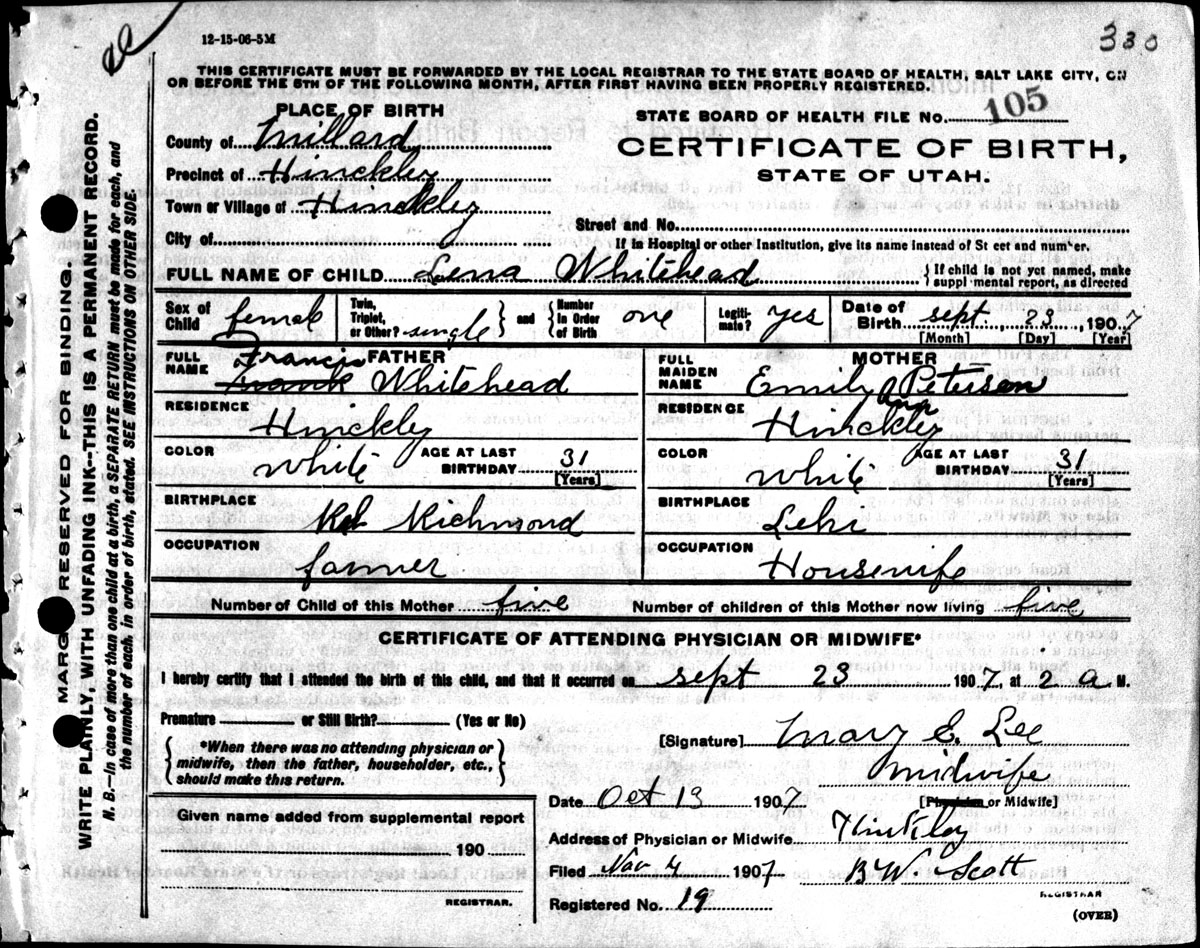 12-15-06-5M
330
THIS CERTIFICATE MUST BE FORWARDED BY THE LOCAL REGISTRAR TO THE STATE BOARD OF HEALTH, SALT LAKE CITY, ON
OR BEFORE THE 5TH OF THE FOLLOWING MONTH, AFTER FIRST HAVING BEEN PROPERLY REGISTERED.
PLACE OF BIRTH
STATE BOARD OF HEALTH FILE No. 105
County of Millard
CERTIFICATE OF BIRTH,
Precinct of Hinckley
STATE OF UTAH.
Town or Village of Hinckley
Street and No.
City of
If in Hospital or other Institution, give its name instead of St eet and num er.
FULL NAME OF CHILD Lena Whitehead
{If child is not yet named, make
suppl mental report, as directed
Sex of Child female
Twin, Triplet, or Other? single } and { Number In Order of Birth one
Legiti- mate? yes
Date of Birth sept. 23, 1907
[Month] [Day] [Year]
FATHER
FULL NAME Francis Frank Whitehead
RESIDENCE Hinckley
COLOR White AGE AT LAST BIRTHDAY 31
[Years]
BIRTHPLACE Richmond
OCCUPATION farmer
MOTHER
FULL MAIDEN NAME Emily Ann Peterson
RESIDENCE Hinckley
COLOR White AGE AT LAST BIRTHDAY 31
[Years]
BIRTHPLACE Lehi
OCCUPATION Housewife
Number of Child of this Mother five Number of children of this Mother now living five
CERTIFICATE OF ATTENDING PHYSICIAN OR MIDWIFE*
I hereby certify that I attended the birth of this child, and that it occurred on sept 23 1907, at 2 a M.
Premature or Still Birth? (Yes or No)
{*When there was no attending physician or
midwife, then the father, householder, etc.,
should make this return.}
[Signature] Mary E. Lee
Midwife
[Physician or Midwife]
Date Oct 13 1907
Given name added from supplemental report
190
REGISTRAR.
Address of Physician or Midwife Hinkley
Filed Nov 4 1907 B W. Scott
REGISTRAR
Registered No. 19
(OVER)
MARG RESERVED FOR BINDING.
WRITE PLAINLY, WITH UNFADING INK--THIS IS A PERMANENT RECORD.
N. B.--In case of more than one child at a birth, a SEPARATE RETURN must be made for each, and
the number of each, in order of birth, stated. SEE INSTRUCTIONS ON OTHER SIDE.